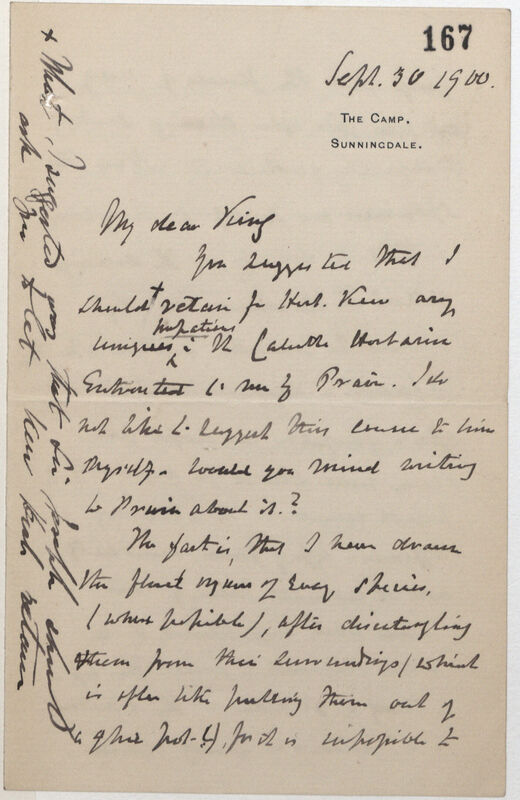 167
Sept. 30 1900.
THE CAMP.
SUNNINGDALE.
My dear King
You suggested that I
should + retain for Herb. Kew any
uniques Impatiens in the Calcutta Herbarium
Entrusted to me by Prain. I do
not like to suggest this course to him
myself. Would you mind writing
to Prain about it.?
The fact is, that I have drawn
the floral organs of every species,
(where possible), after disentangling
them from their surroundings (which
is often like pulling them out of
a glue pot-!), for it is impossible to
+ What I suggested was that Sir Joseph should
ask you to let Kew Herb retain